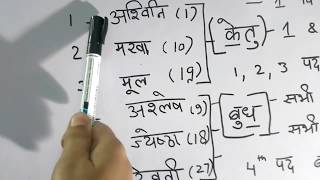 1 अश्विनि (1) केतु - 1 &
2 मघा (10)
मूल (19) 1, 2, 3 पद
अश्लेष (9) बुध - सभी
ज्येष्ठा (18) सभी
रेवती (27) 4th पद